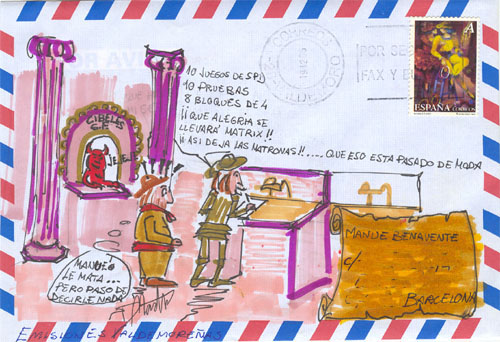 10 JUEGOS DE SPD
10 PRUEBAS
8 BLOQUES DE 4
¡¡QUE ALEGRIA SE
LLEVARÁ MATRIX!!
¡¡ASI DEJA LAS MATRONAS!!.....QUE ESO ESTA PASADO DE MODA
CIBELES
JE, JE..
MANUE
LE MATA...
PERO PASO DE
DECIRLE NADA
MANUE BENAVENTE
C/
BARCELONA
EMISIONES VALDEMOREÑAS
CORREOS
POR SE
FAX Y
A
ESPAÑA
CORREOS